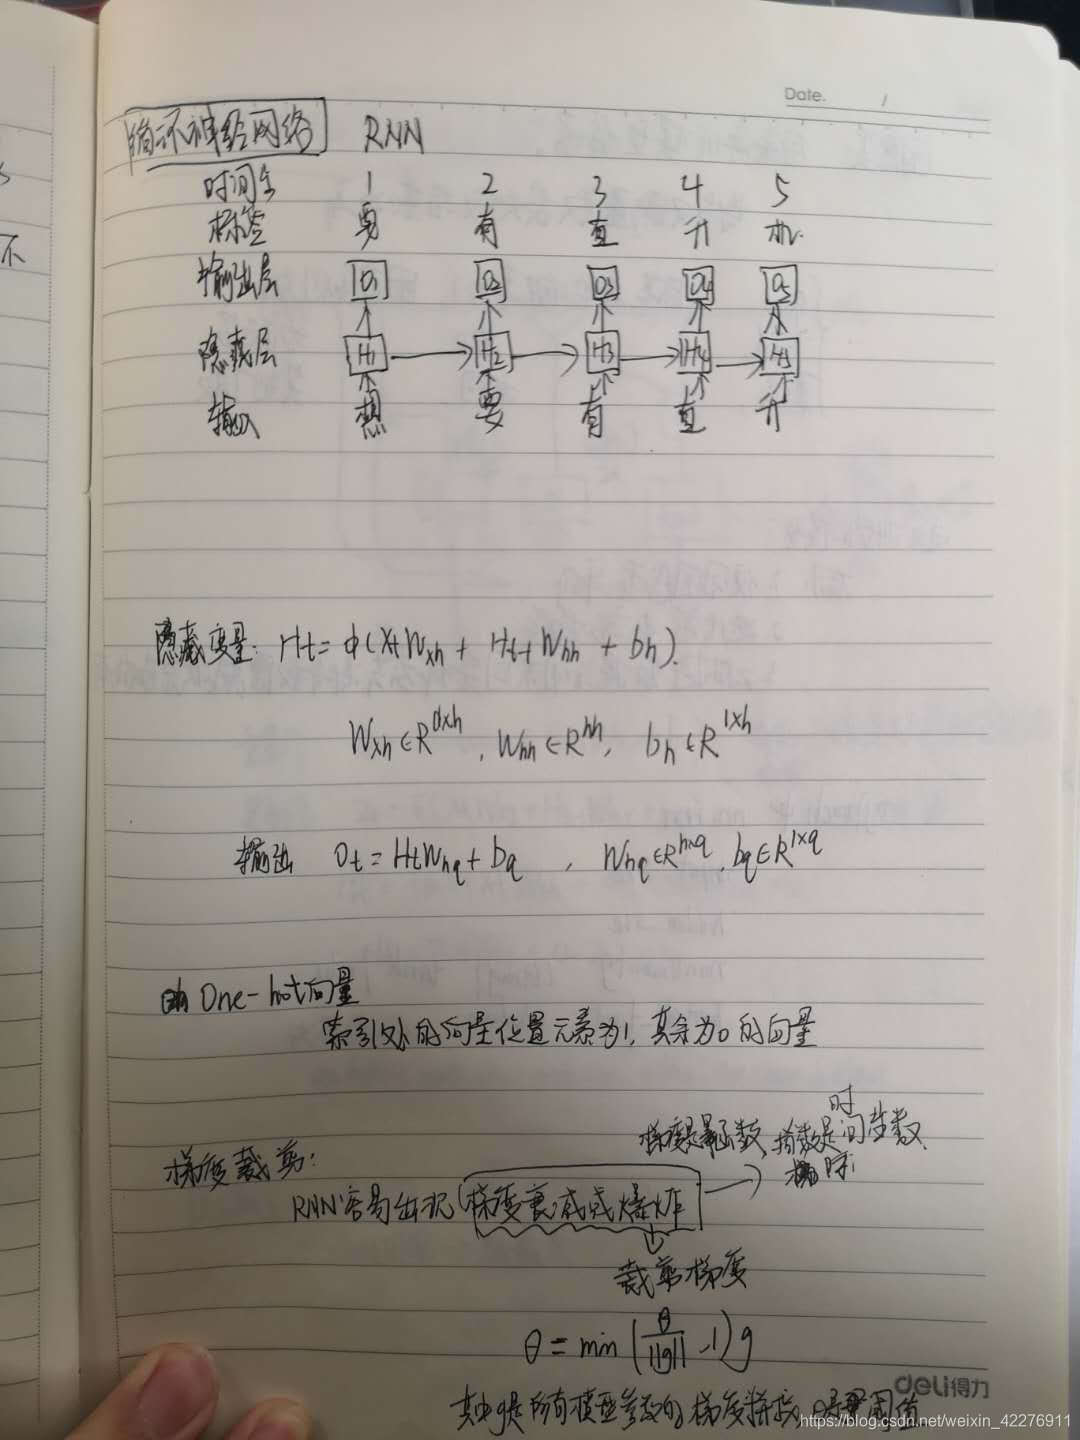 Date. /
循环神经网络 RNN
时间步 1 2 3 4 5
标签 要 有 直 升 机.
输出层 O1 O2 O3 O4 O5
隐藏层 H1 H2 H3 H4 H5
输入 想 要 有 直 升
隐藏变量: Ht = ϕ(XtWxh + Ht-1 Whh + bh).
Wxh ∈ R^d×h, Whh ∈ R^hh, bh ∈ R^1×h
输出 Ot = HtWhq + bq , Whq ∈ R^h×q, bq ∈ R^1×q
One-hot向量
索引处的向量位置元素为1, 其余为0的向量
梯度是幂函数, 指数是时间步数
梯度裁剪:
RNN容易出现 梯度衰减或爆炸
裁剪梯度
θ = min (θ/||g||, 1) g
deli得力
其中g是所有模型参数的梯度拼接, θ是阈值
https://blog.csdn.net/weixin_42276911
不